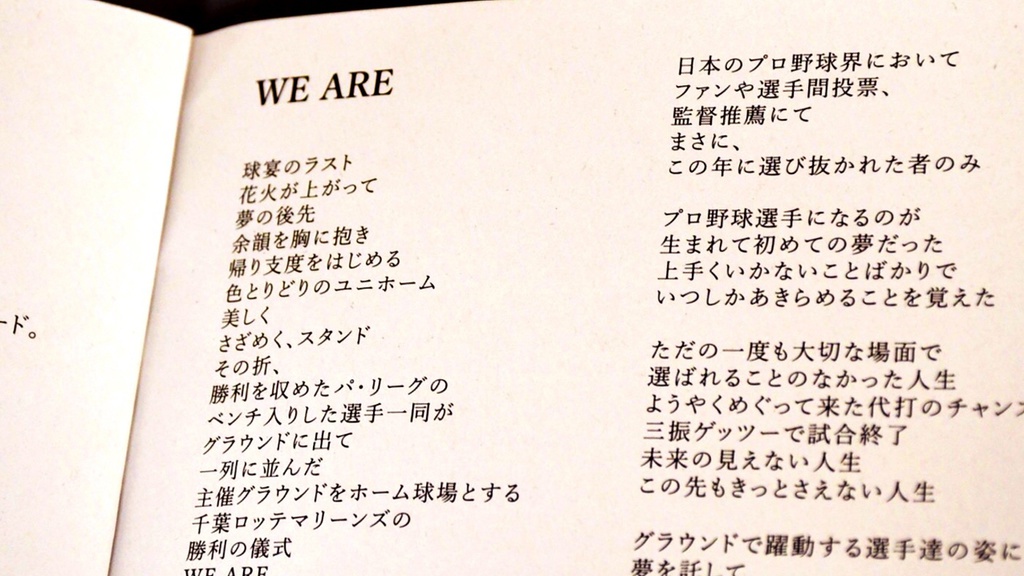 ード。
WE ARE
球宴のラスト
花火が上がって
夢の後先
余韻を胸に抱き
帰り支度をはじめる
色とりどりのユニホーム
美しく
さざめく、スタンド
その折、
勝利を収めたパ・リーグの
ベンチ入りした選手一同が
グラウンドに出て
一列に並んだ
主催グラウンドをホーム球場とする
千葉ロッテマリーンズの
勝利の儀式
WE ARE
日本のプロ野球界において
ファンや選手間投票、
監督推薦にて
まさに、
この年に選び抜かれた者のみ
プロ野球選手になるのが
生まれて初めての夢だった
上手くいかないことばかりで
いつしかあきらめることを覚えた
ただの一度も大切な場面で
選ばれることのなかった人生
ようやくめぐって来た代打のチャンス
三振ゲッツーで試合終了
未来の見えない人生
この先もきっとさえない人生
グラウンドで躍動する選手達の姿に
夢を託して